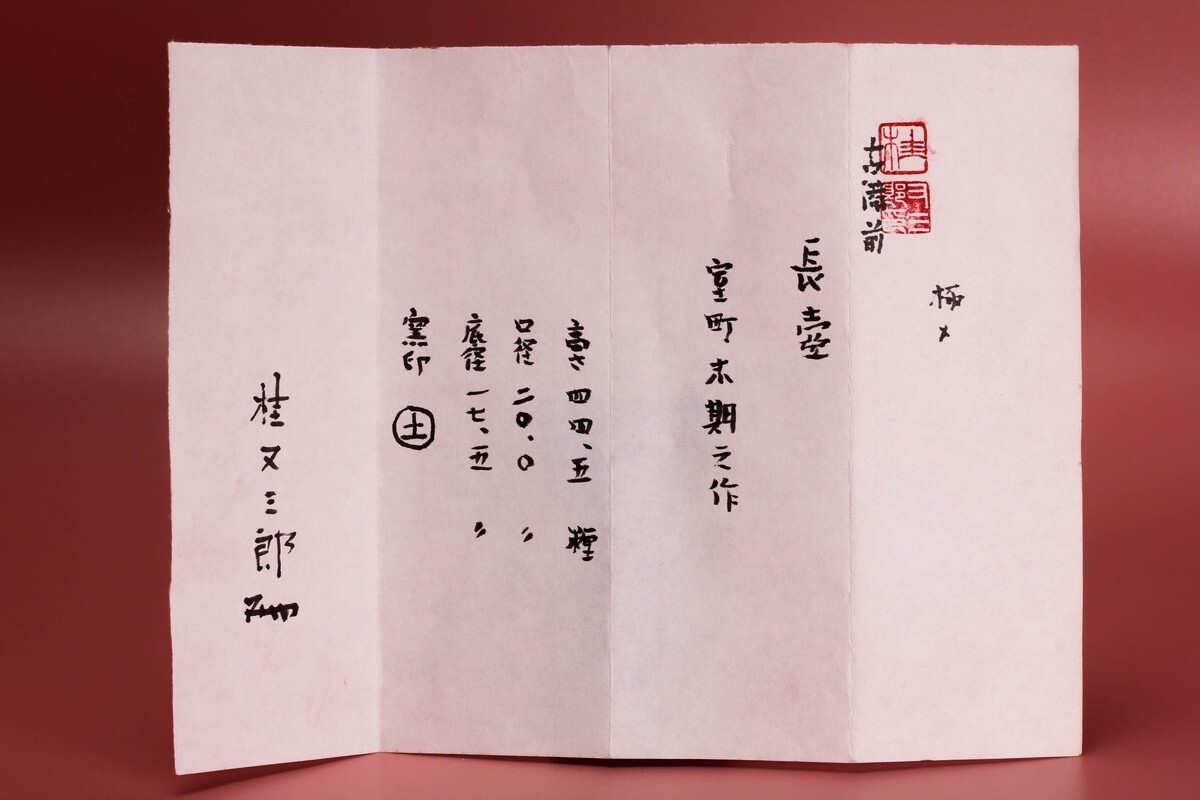 極メ
古備前
長壺
室町末期之作
高さ四四、五 糎
口径二〇、〇 〃
底径一七、五 〃
窯印 土
桂又三郎
桂